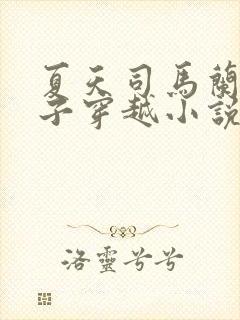 夏天司馬蘭
子穿越小說
洛靈兮兮